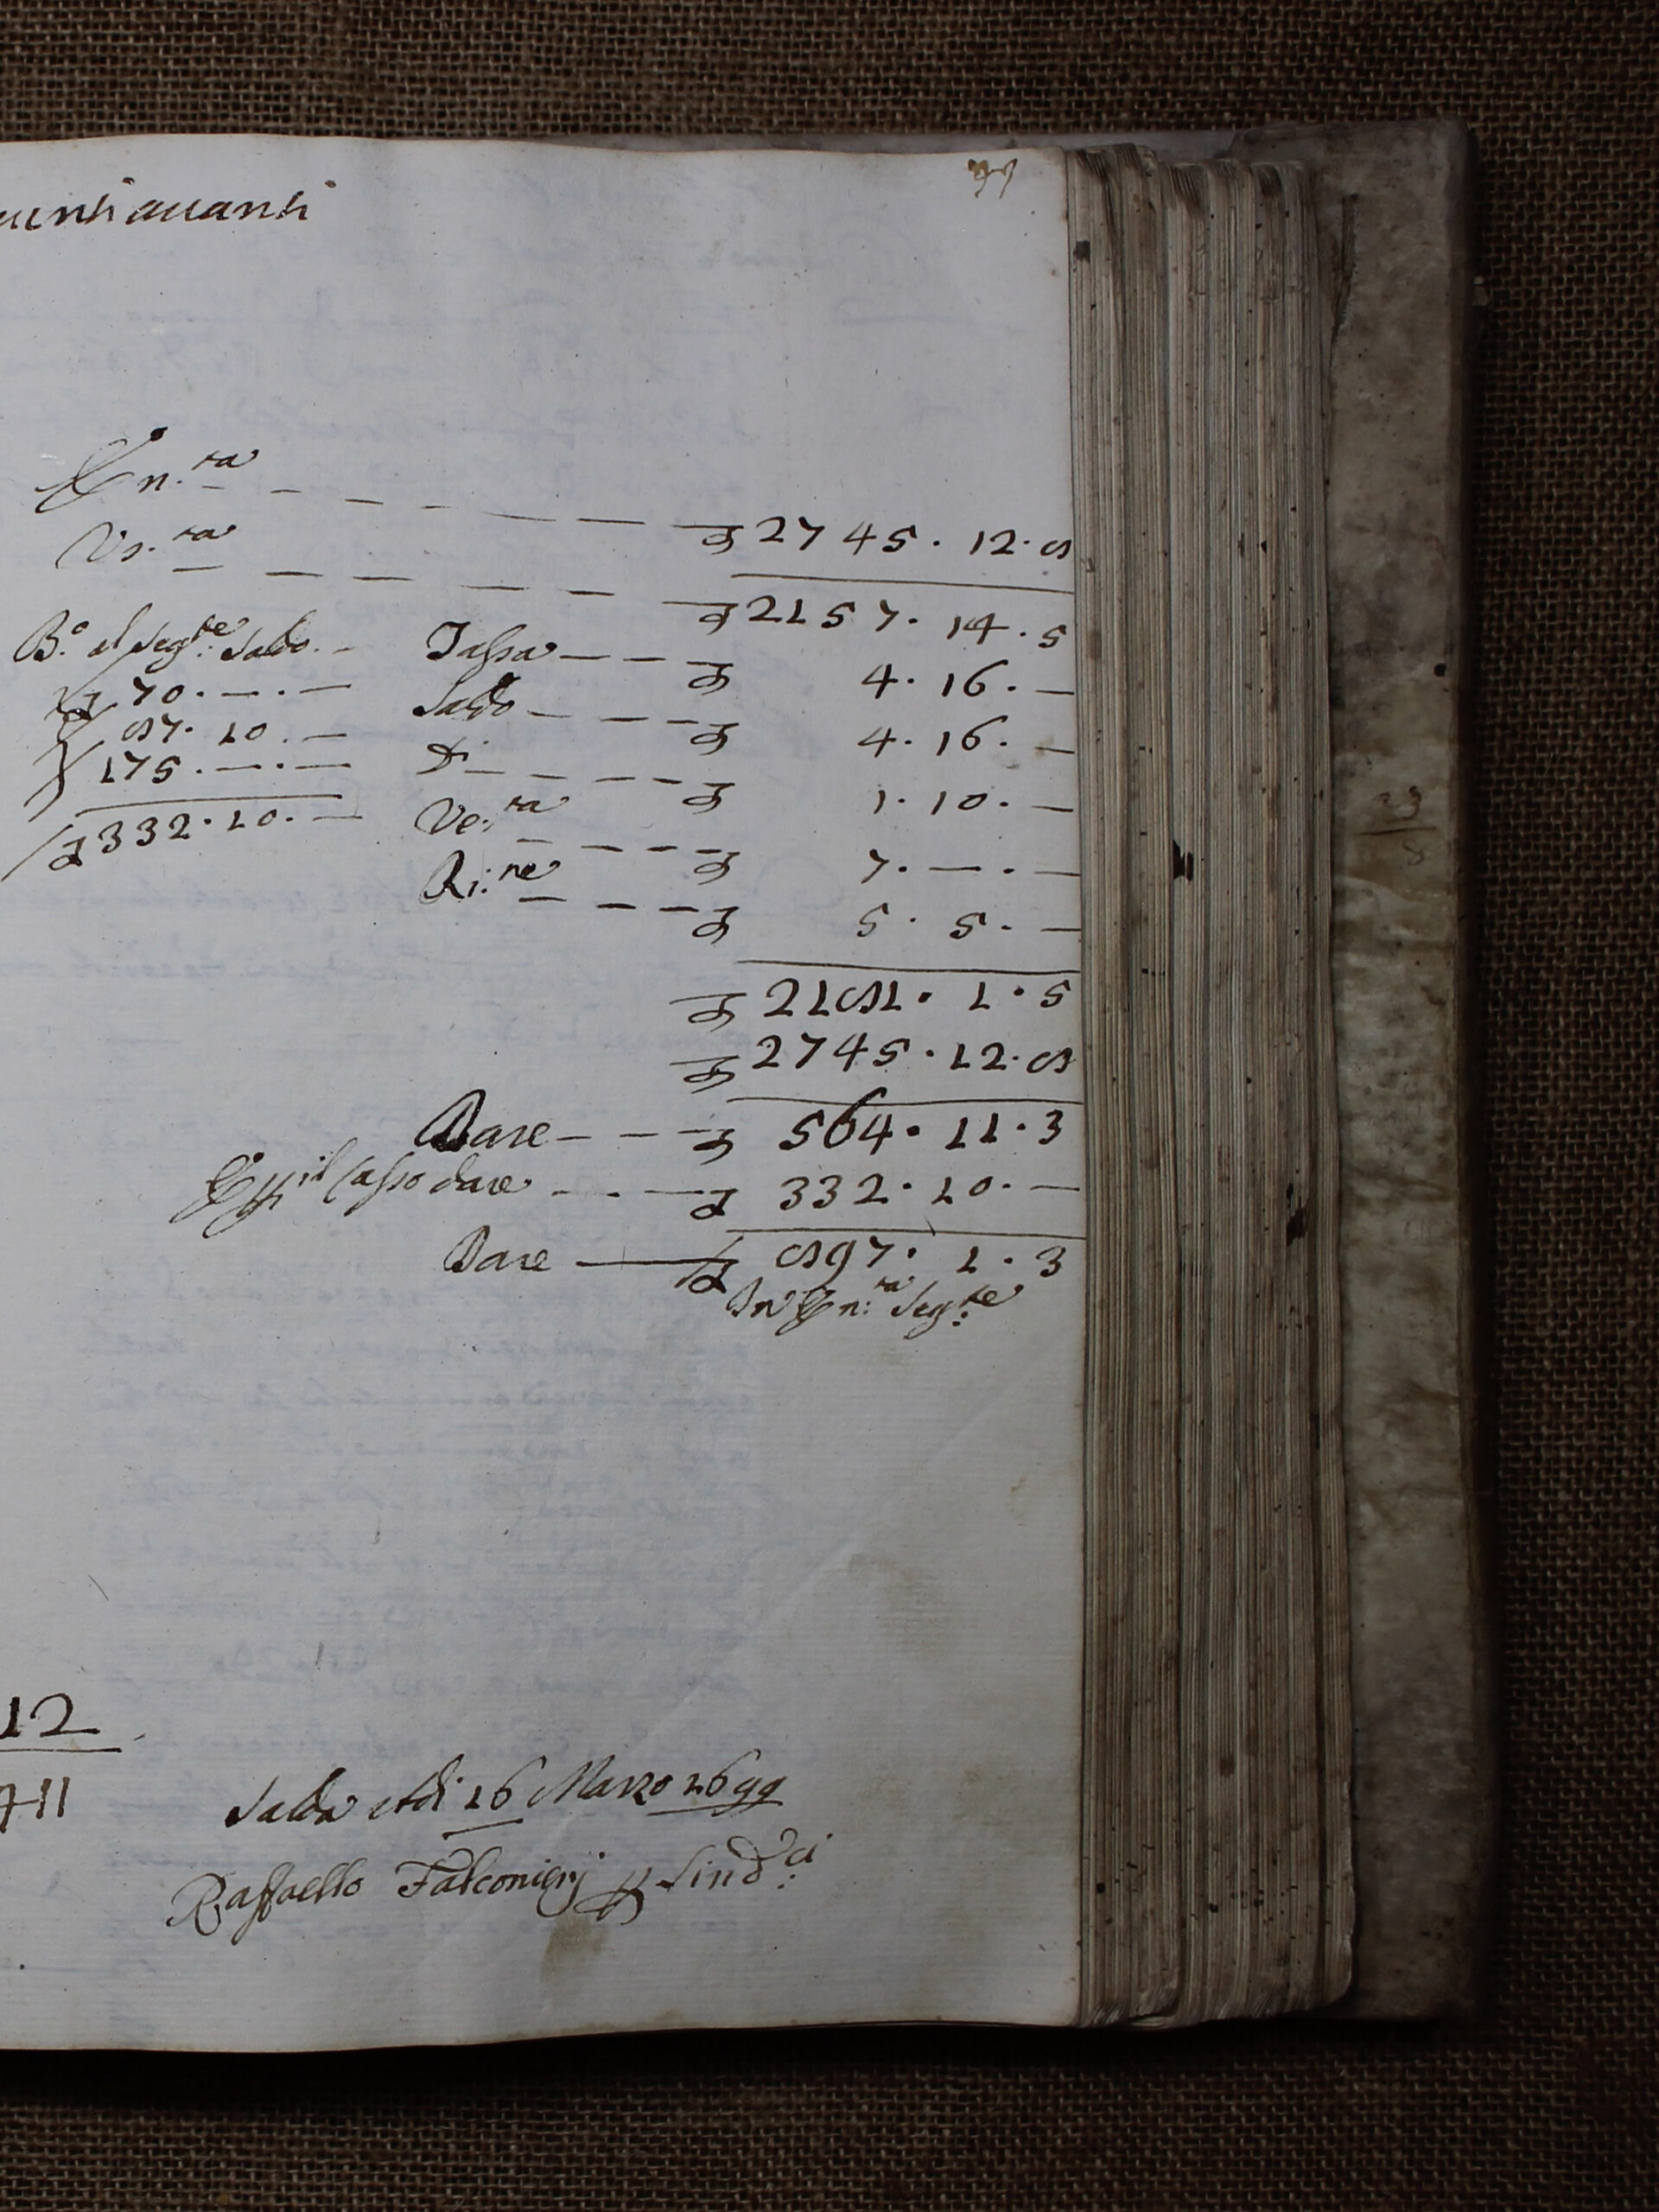 uenti auanti
En.ra — — — — — — — ₤ 2745. 12. 8
Vs.ra — — — — — — — ₤ 2157. 14. 5
B.o il seg.te saldo. – Tassa — — — ₤ 4. 16. —
₤ 70. —. — Saldo — — — — ₤ 4. 16. —
87. 10. — D. — — — — — ₤ 1. 10. —
175. —. — Ve.ra — — — — ₤ 7. —. —
₤ 332. 10. — Ri.ne — — — — ₤ 5. 5. —
₤ 2181. 1. 5
₤ 2745. 12. 8
Dare — — — ₤ 564. 11. 3
E p il Casso dare — . — ₤ 332. 10. —
Dare — ₤ 897. 1. 3
In En.ra seg.te
12
711
Salda Adi 16 Marzo 1699
Raffaello Falconierj p Sind.ci